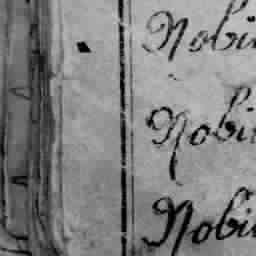 Nobi
Nobi
Nobi